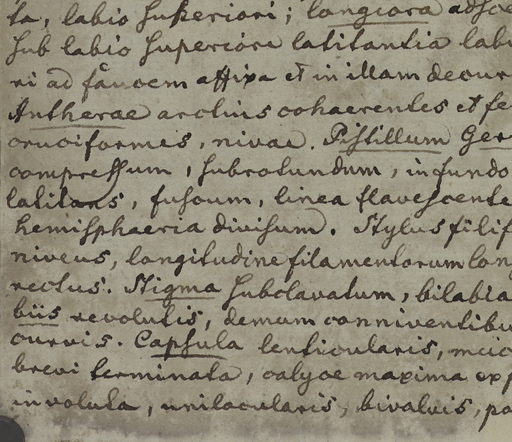 ta, labio superiori; longiora adsce
sub labio superiore latitantia labi
ri ad faucem affixa et in illam decur
Antherae arctius cohaerentes et fe
cruciformes, niveae. Pistillum Ger
compressum, subrotundum, in fundo
latitans, fuscum, linea flavescente
hemisphaeria divisum. Stylus filif
niveus, longitudine filamentorum long
rectus. Stigma subclavatum, bilabia
biis revolutis, demum conniventibu
curvis. Capsula lenticularis, mic
brevi terminata, calyce maxima exp
involuta, unilocularis, bivalvis, po